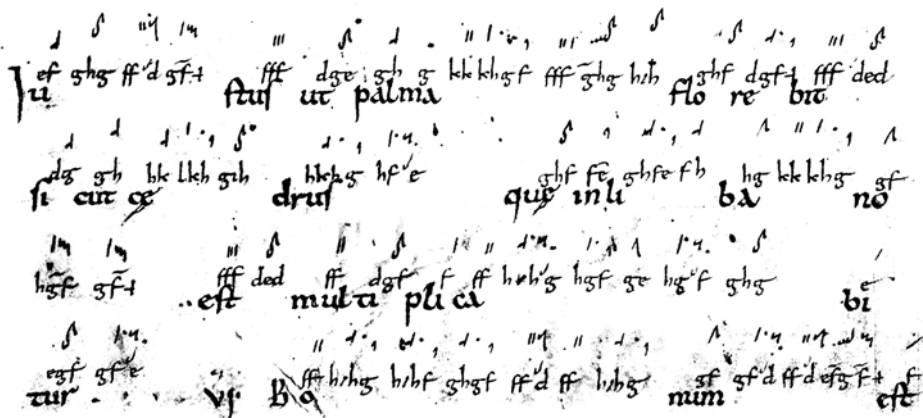 ef ghg ff d gf fff dge gh g kk kkhgf fff ghg hih ghf dgf fff ded
Iu stus ut palma flo re bit
dg gh hk lkh gih hkkg hf e ghf fe ghfe fh hg kk kkhg gf
si cut ce drus que in li ba no
hgf gf fff ded ff dgf f ff hihg hgf ge hg f ghg e
est multi pli ca bi
egf gf e ff hihg hihf ghgf ff d ff hihg gf gf d ff d efgf f
tur V Bo num est